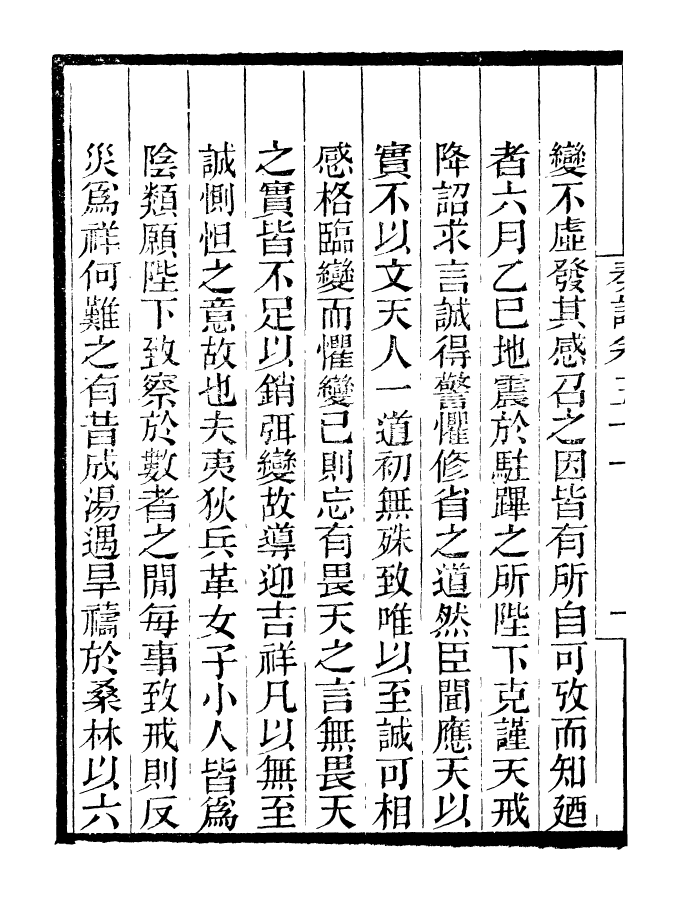 變不虛發其感召之因皆有所自可攷而知廼
者六月乙巳地震於駐蹕之所陛下克謹天戒
降詔求言誠得警懼修省之道然臣聞應天以
實不以文天人一道初無殊致唯以至誠可相
感格臨變而懼變已則忘有畏天之言無畏天
之實皆不足以銷弭變故導迎吉祥凡以無至
誠惻怛之意故也夫夷狄兵革女子小人皆為
陰類願陛下致察於數者之閒每事致戒則反
災為祥何難之有昔成湯遇旱禱於桑林以六